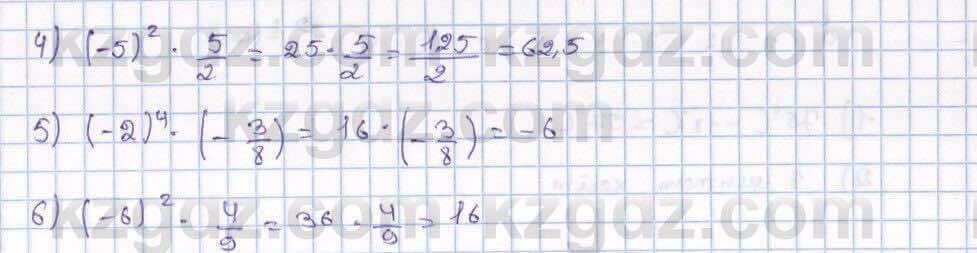 4) (-5)² · 5/2 = 25 · 5/2 = 125/2 = 62,5
5) (-2)⁴ · (-3/8) = 16 · (-3/8) = -6
6) (-6)² · 4/9 = 36 · 4/9 = 16
kzgaz.com
kzgaz.com
kzgaz.com kzgaz.com